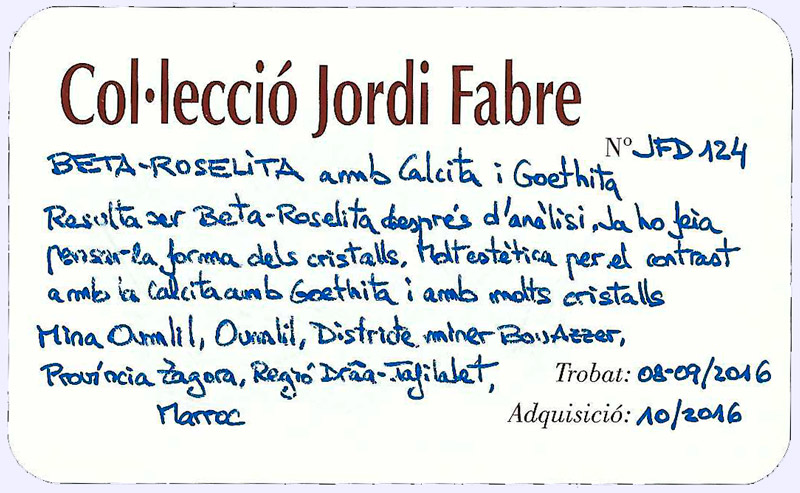 Col·lecció Jordi Fabre
Nº JFD 124
BETA-ROSELITA amb Calcita i Goethita
Resulta ser Beta-Roselita després d'anàlisi. Ja ho feia
pensar la forma dels cristalls. Molt estètica per el contrast
amb la Calcita amb Goethita i amb molts cristalls
Mina Oumlil, Oumlil, Districte miner Bou Azzer,
Província Zagora, Regió Drâa-Tafilalet, Trobat: 08-09/2016
Marroc Adquisició: 10/2016